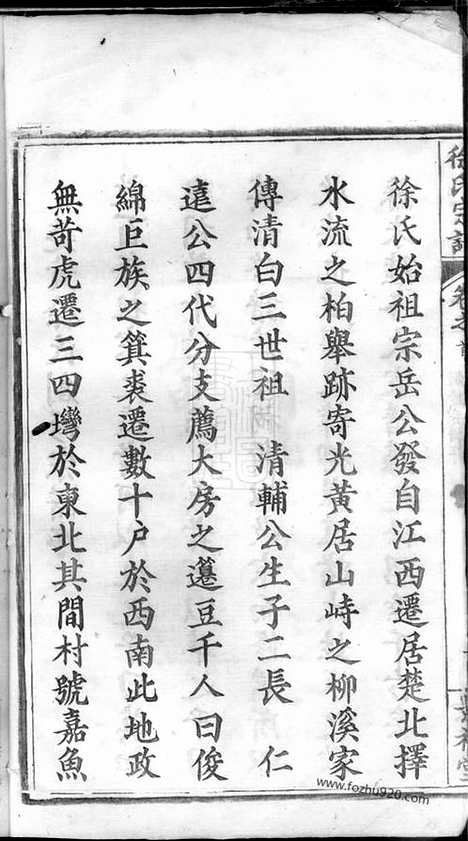 徐氏宗譜
徐氏始祖宗岳公發自江西遷居楚北擇
水流之柏舉跡寄光黃居山峙之柳溪家
傳清白三世祖　清輔公生子二長　仁
遠公四代分支薦大房之籩豆千人曰俊
綿巨族之箕裘遷數十户於西南此地政
無苛虎遷三四塆於東北其間村號嘉魚
www.fozhu920.com